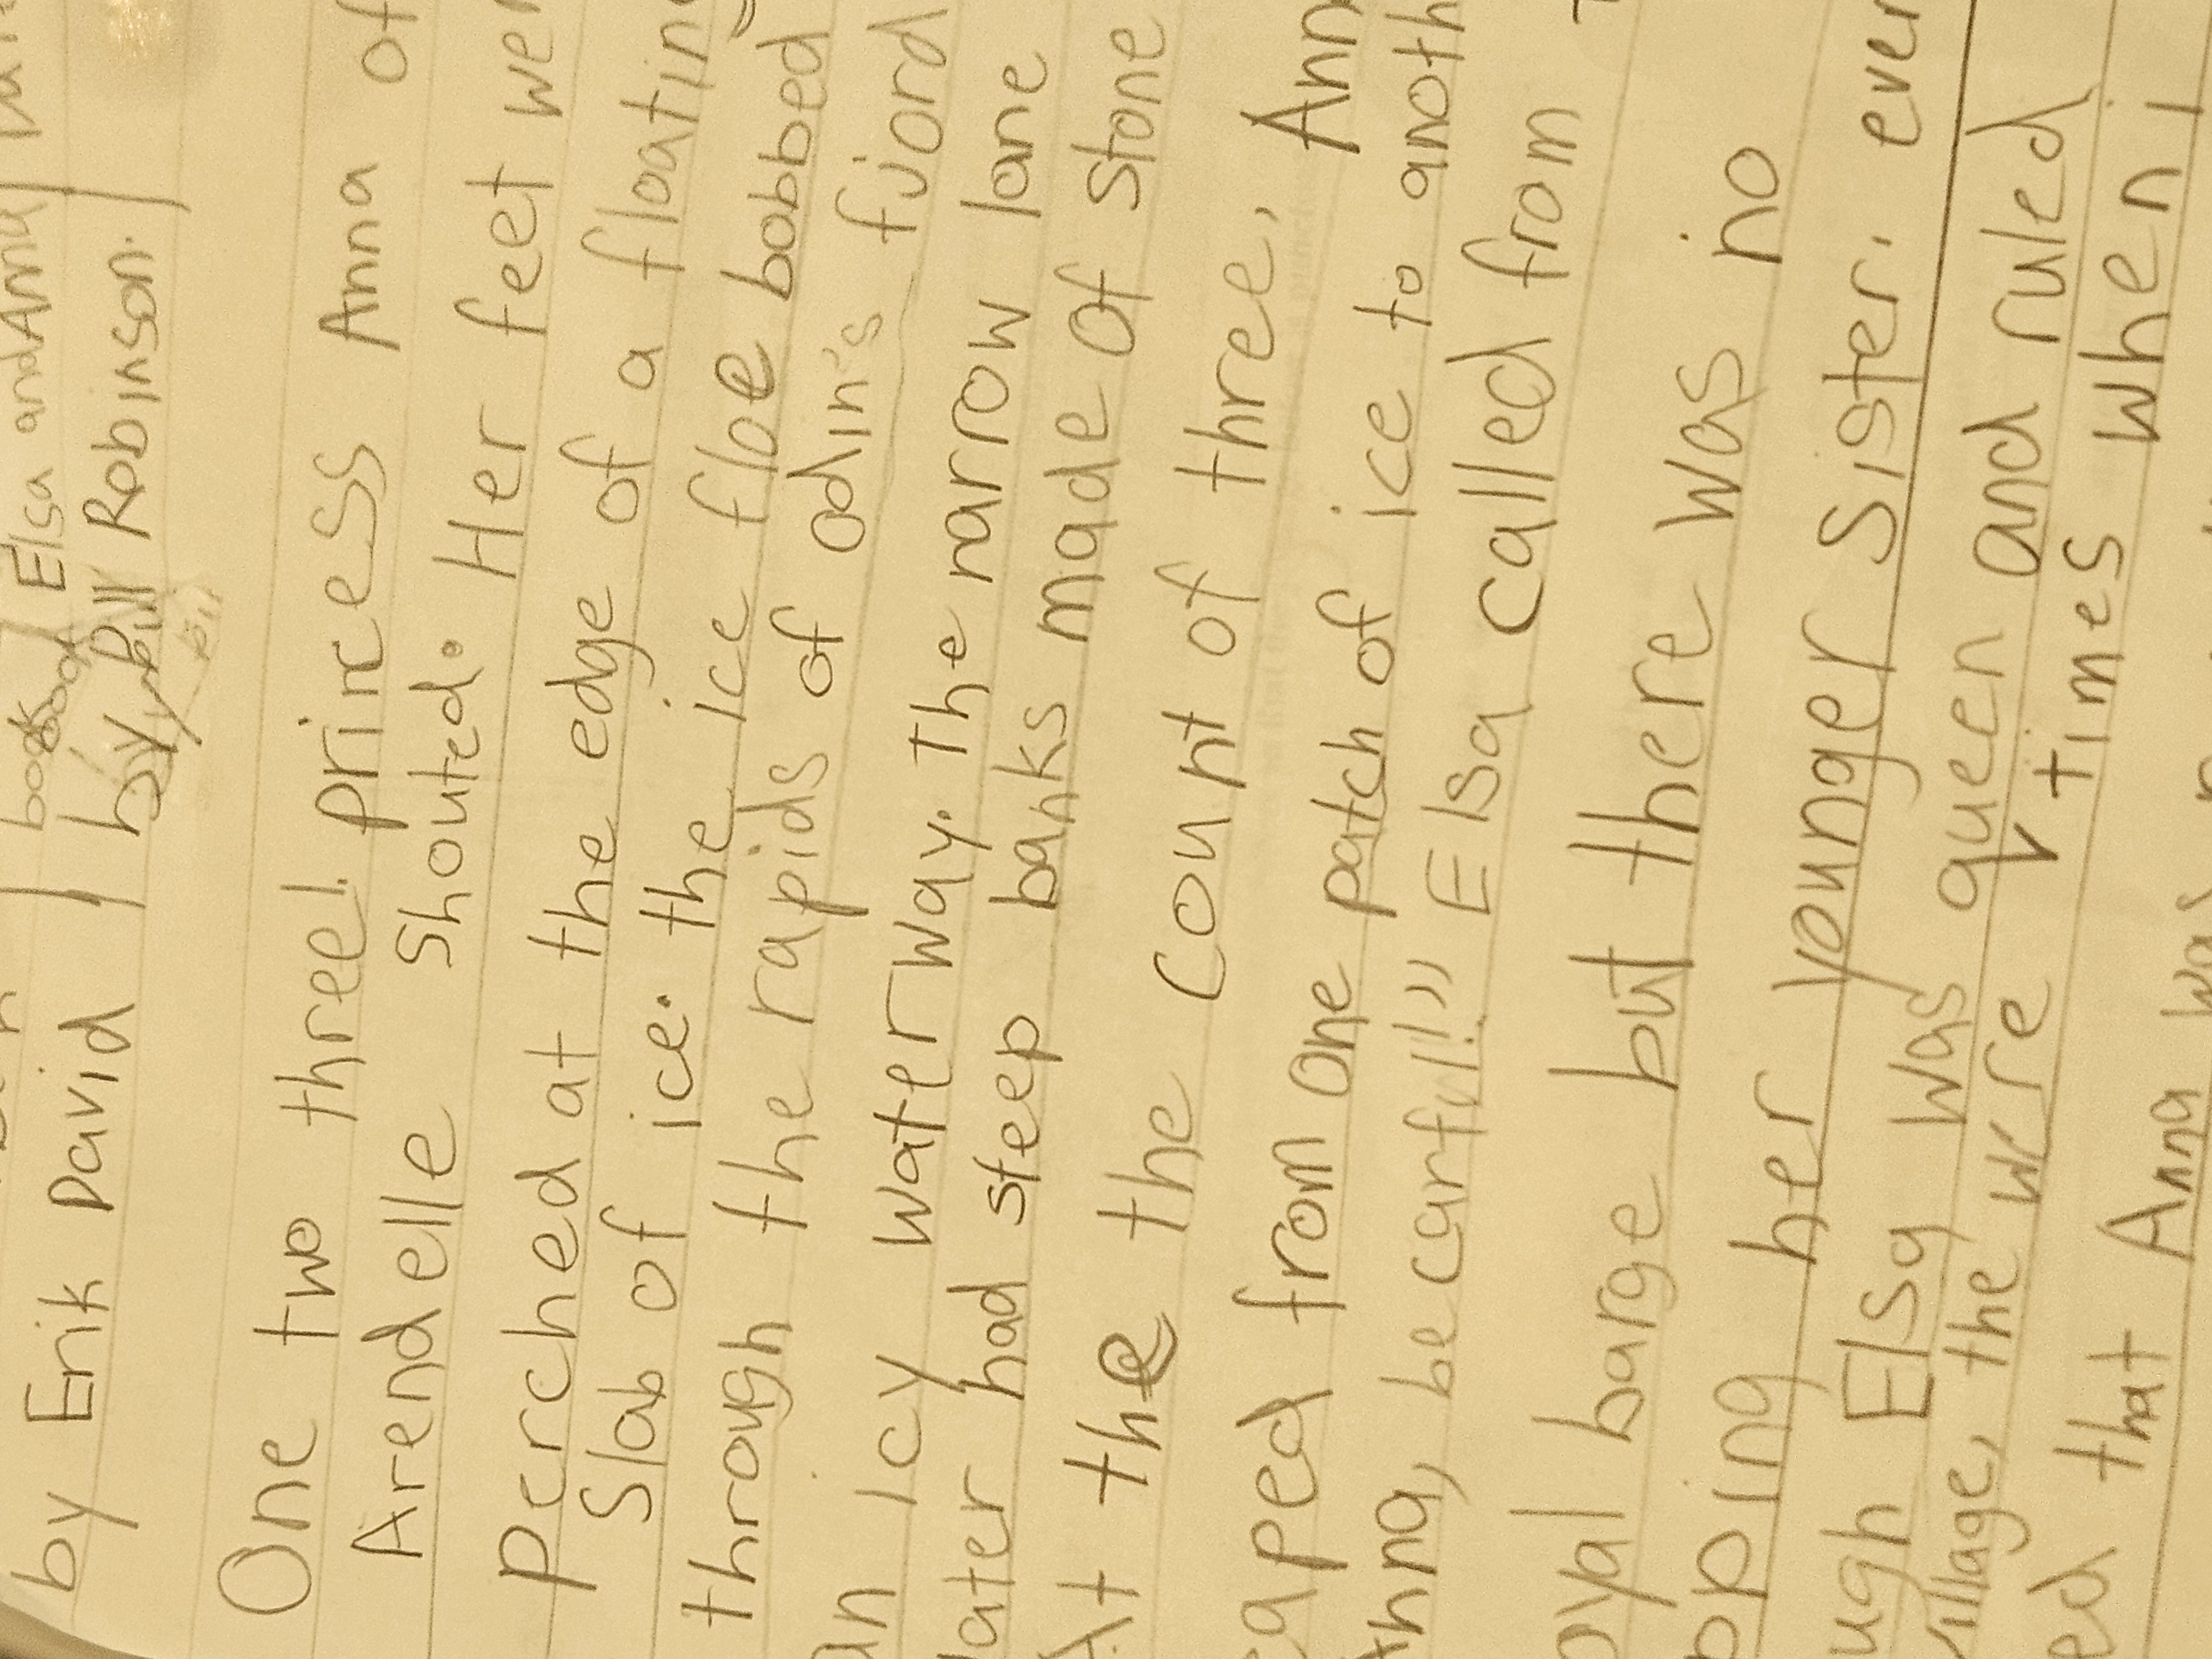 book Elsa and Anna
by Erik David | by Bill Robinson.
One two three! princess Anna of
Arendelle shouted. Her feet wer
perched at the edge of a floatin
slab of ice. the ice floe bobbed
through the rapids of odin's fjord
an icy waterway. the narrow lane
later had steep banks made of stone
At the the count of three, Ann
eaped from one patch of ice to anoth
Anna, be carful!" Elsa called from
oyal barge but there was no
pping her younger sister. even
ugh Elsa was queen and ruled
village, the wre times when i
ed that Anna was